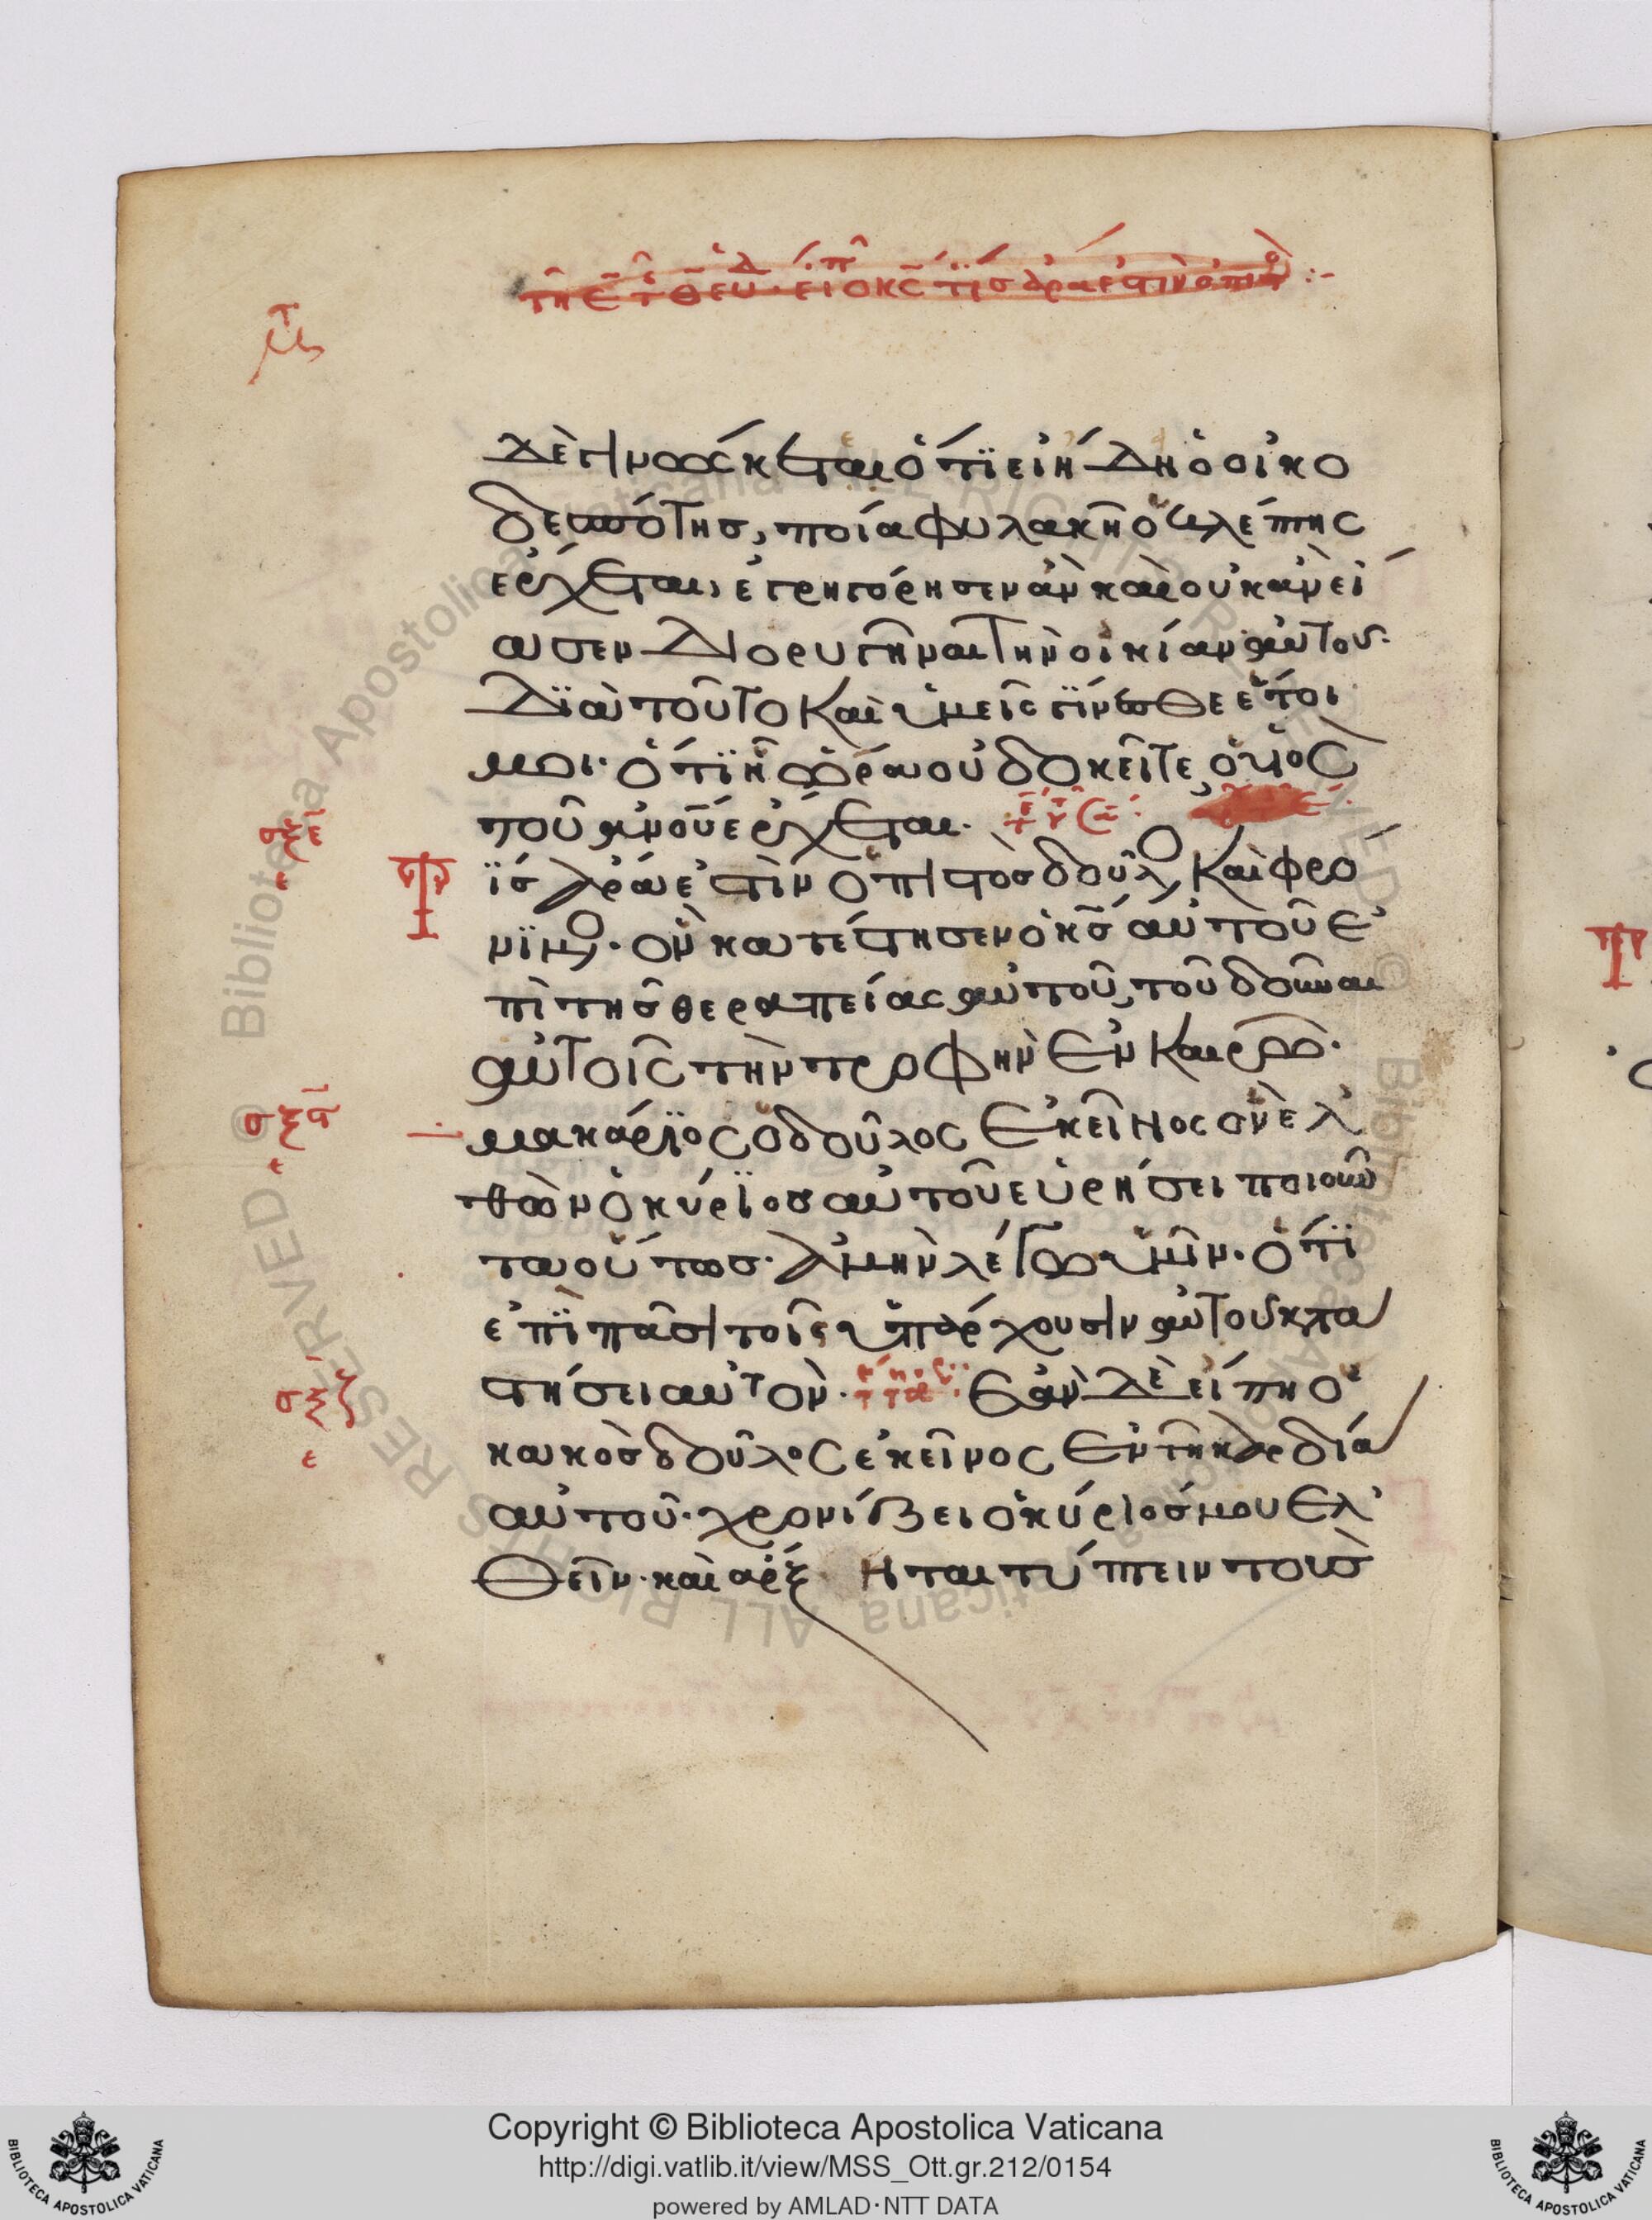 δὲ γινώσκεται ὅτϊ εἰ ἤδη ὁ οἰκο
δεσπότησ, ποία φυλακῆ ὁ κλέπτης
ἔρχεται, ἐγρηγόρησεν ἂν καὶ οὐκ ἂν εἴ
ασεν διορυγῆναι τὴν οἰκίαν αὐτοῦ.
Δϊὰ τοῦτο καὶ ὑμεῖς γϊνεσθε ἕτοι
μοι. ὅτϊ ἧ ὥρα οὐ δοκεῖτε ὁ υἱὸς
τοῦ ἀνοῦ ἔρχεται.
Τϊσ ἄρα ἐστὶν ὁ πιστὸσ δοῦλο καὶ φρο
νϊμο. ὃν κατέστησεν ὁ κσ αὐτοῦ ἐ
πὶ τῆσ θεραπείας αὐτοῦ, τοῦ δοῦναι
αὐτοῖς τὴν τροφὴν ἐν καιρῶ.
μακάρϊος ὁ δοῦλος ἐκεῖνος ὃν ἐλ
θὼν ὁ κύρϊοσ αὐτοῦ εὑρήσει ποιοῦν
τα οὕτωσ. ἀμὴν λέγω ὑμῖν. ὅτϊ
ἐπϊ πᾶσι τοῖς ὑπάρχουσιν αὐτοῦ κατα
στήσει αὐτὸν. Ἐὰν δὲ εἴπη ὁ
κακὸσ δοῦλος ἐκεῖνος ἐν τῆ καρδία
αὐτοῦ. χρονίζει ὁ κύριόσ μου ἐλ
θεῖν. καὶ ἄρξηται τύπτειν τοὺσ
Copyright © Biblioteca Apostolica Vaticana
http://digi.vatlib.it/view/MSS_Ott.gr.212/0154
powered by AMLAD·NTT DATA